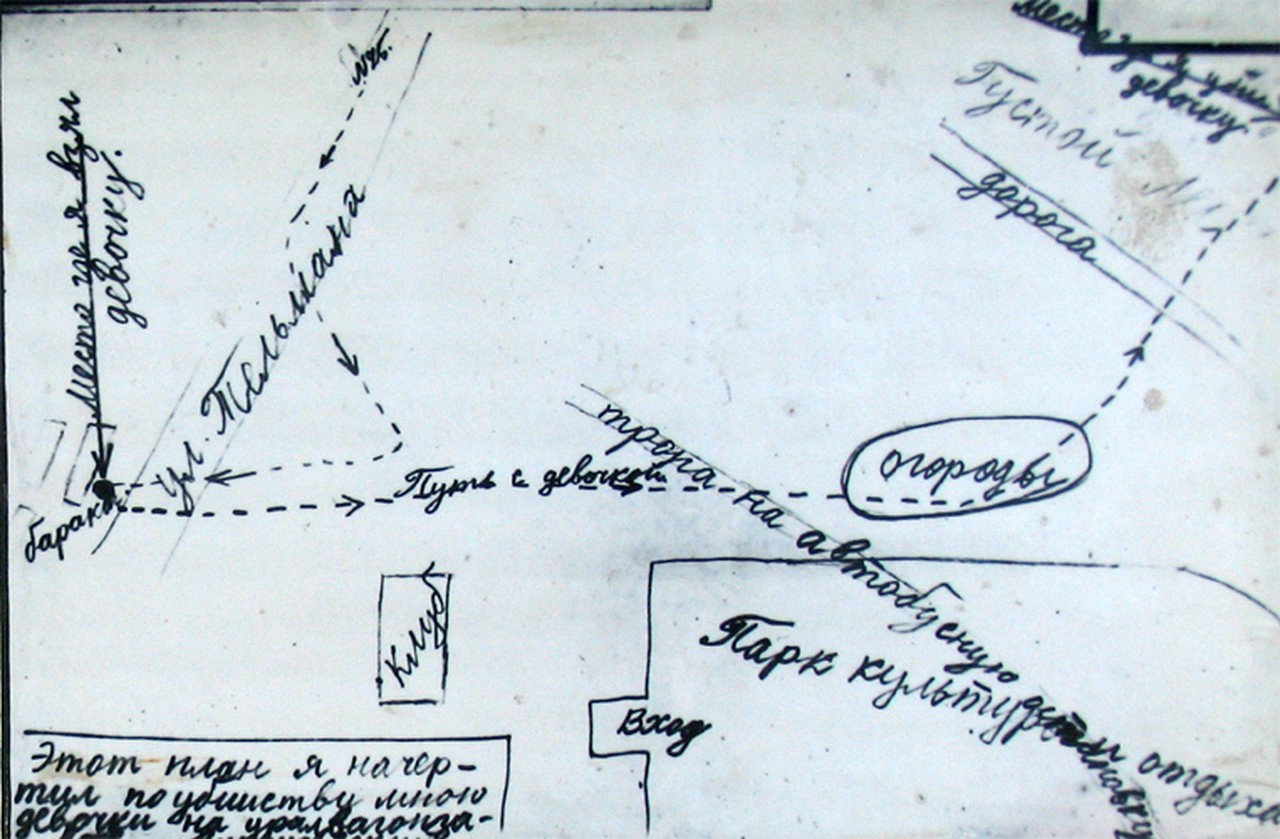 место где я убил
девочку
Густой
дорога
Место где я взял
девочку.
ул. Тельмана
бараки
Путь с девочкой
тропа на автобусную остановку
огороды
Клуб
Вход
Парк культуры и отдыха
Этот план я начер-
тил по убийству мною
девочки на уралвагонза-